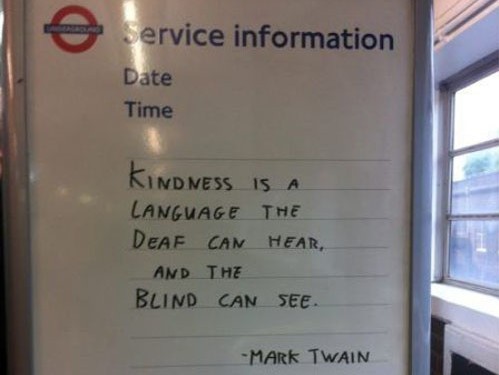 UNDERGROUND
Service information
Date
Time
KINDNESS IS A
LANGUAGE THE
DEAF CAN HEAR,
AND THE
BLIND CAN SEE.
-MARK TWAIN